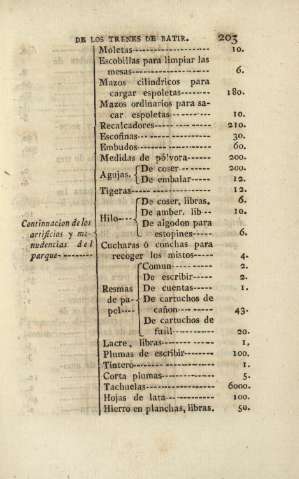 DE LOS TRENES DE BATIR. 203
Moletas---------------- 10.
Escobillas para limpiar las
mesas---------------- 6.
Mazos cilindricos para
cargar espoletas-------- 180.
Mazos ordinarios para sa-
car espoletas---------- 10.
Recalcadores------------ 210.
Escofinas--------------- 30.
Embudos--------------- 60.
Medidas de pólvora------- 200.
Agujas. { De coser -------- 200.
De embalar-------- 12.
Tigeras----------------- 12.
Hilo--- { De coser, libras. 6.
De amber. lib-- 10.
De algodon para
estopines------- 6.
Continuacion de los
artificios y me-
nudencias del
parque--------
Cucharas ó conchas para
recoger los mistos------ 4.
Resmas de pa-pel---- { Comun--------- 2.
De escribir------- 2.
De cuentas------- 1.
De cartuchos de
cañon---------- 43.
De cartuchos de
fusil----------- 20.
Lacre, libras------------ 1,
Plumas de escribir-------- 100.
Tintero---------------- 1.
Corta plumas------------ 5.
Tachuelas--------------- 6000.
Hojas de lata------------ 100.
Hierro en planchas, libras. 50.